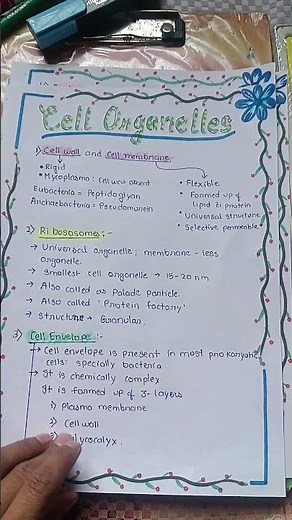 Cell Organelles
1) Cell wall and Cell membrane
• Rigid
• Mycoplasma : Cell wall absent
Eubacteria = Peptidoglyan
Archaebacteria = Pseudomurein
• Flexible
• Formed up of
lipid & protein
• Universal structure
• Selective permeable
2) Ribososomes :-
→ Universal organelle; membrane-less
organelle.
→ Smallest cell organelle → 15-20 nm
→ Also called as Palade Particle.
→ Also called 'Protein factory'
→ Structure → Granular.
3) Cell Envelope :-
→ Cell envelope is present in most prokaryotic
cells: specially bacteria
→ It is chemically complex
It is formed up of 3-layers
1) Plasma membrane
2) Cell wall
lycocalyx.